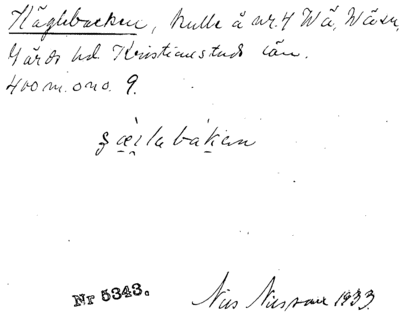 Häglebacken, kulle å nr. 4 Wä, Wä sn,
Gärds hd. Kristianstads län.
400 m. ono. 9.
bakan
Nr 5343.
Nils Nilsson 1933.